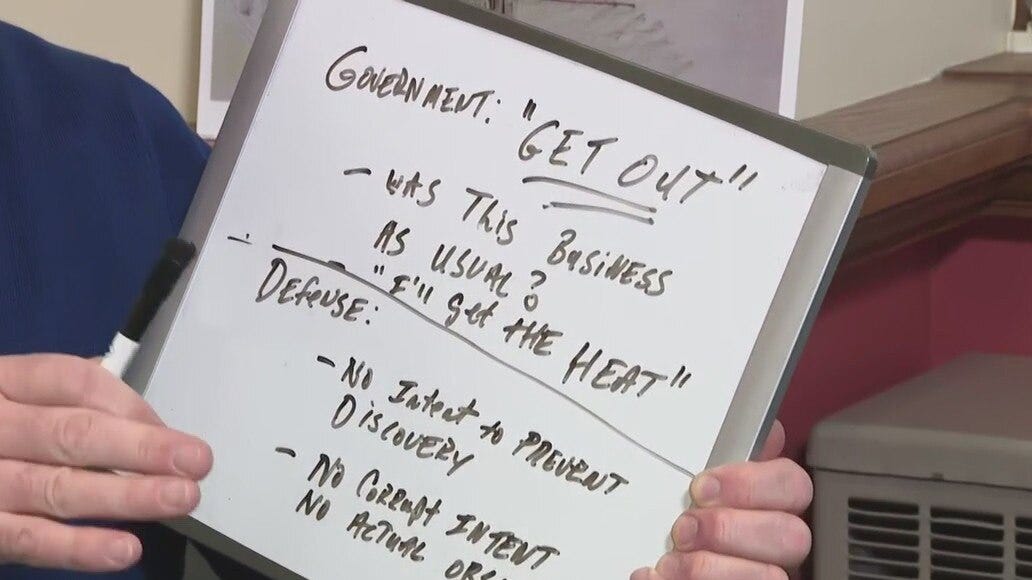 GOVERNMENT: "GET OUT"
- WAS THis BUSiNESS
AS USUAL?
- "I'll Get THE HEAT"
DefenSE:
- NO Intent to PREVENT
DiSCOVERY
- NO CorRupt INTENT
NO ACTUAL